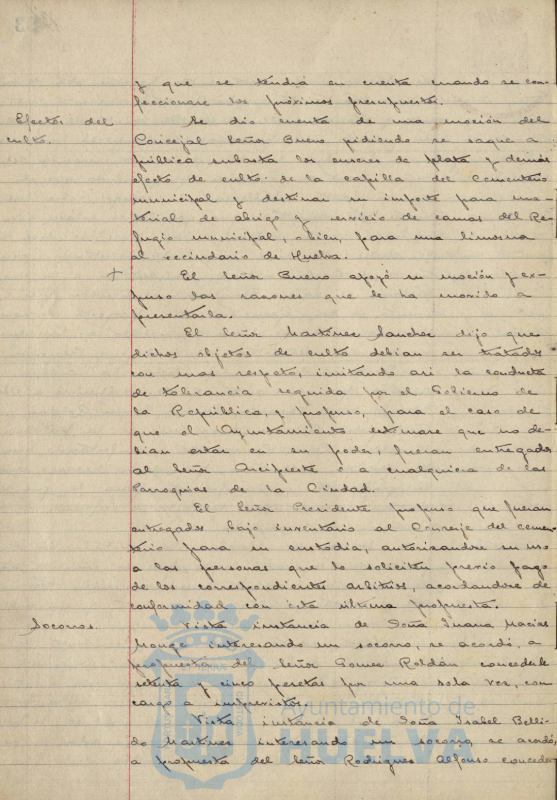 y que se tendrá en cuenta cuando se con-
feccionare los próximos presupuestos.
Efectos del
culto.
Se dio cuenta de una moción del
Concejal Señor Bueno pidiendo se saque a
pública subasta los enseres de plata y demás
efecto de culto de la capilla del Cementerio
municipal y destinar su importe para ma-
terial de abrigo y servicio de camas del Re-
fugio municipal, o bien, para una limosna
al vecindario de Huelva.
+
El Señor Bueno apoyó su moción y ex-
puso las razones que le ha movido a
presentarla.
El Señor Martínez Sanchez dijo que
dichos objetos de culto debian ser tratados
con mas respeto, imitando asi la conducta
de tolerancia seguida por el Gobierno de
la República, y propuso, para el caso de
que el Ayuntamiento estimase que no de-
bian estar en su poder, fueran entregados
al Señor Arcipreste o a cualquiera de las
Parroquias de la Ciudad.
El Señor Presidente propuso que fueran
entregados bajo inventario al Conserje del cemen-
terio para su custodia, autorizandose su uso
a las personas que lo soliciten previo pago
de los correspondientes arbitrios, acordandose de
conformidad con esta última propuesta.
Socorros.
Vista instancia de Doña Juana Macias
Monge interesando un socorro, se acordó, a
propuesta del Señor Gomez Roldán concederle
setenta y cinco pesetas por una sola vez, con
cargo a imprevistos.
Vista instancia de Doña Isabel Belli-
do Martinez interesando un socorro, se acordó,
a propuesta del Señor Rodriguez Alfonso conceder
Ayuntamiento de
HUELVA